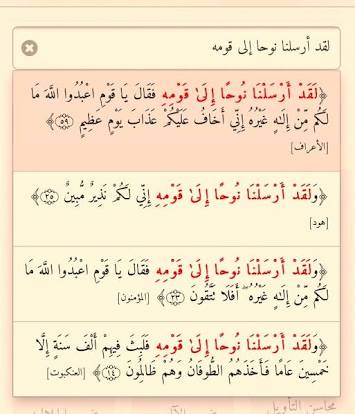 لقد أرسلنا نوحا إلى قومه
﴿لَقَدْ أَرْسَلْنَا نُوحًا إِلَىٰ قَوْمِهِ فَقَالَ يَا قَوْمِ اعْبُدُوا اللَّهَ مَا
لَكُم مِّنْ إِلَٰهٍ غَيْرُهُ إِنِّي أَخَافُ عَلَيْكُمْ عَذَابَ يَوْمٍ عَظِيمٍ ۝٥٩﴾
[الأعراف]
﴿وَلَقَدْ أَرْسَلْنَا نُوحًا إِلَىٰ قَوْمِهِ إِنِّي لَكُمْ نَذِيرٌ مُّبِينٌ ۝٢٥﴾
[هود]
﴿وَلَقَدْ أَرْسَلْنَا نُوحًا إِلَىٰ قَوْمِهِ فَقَالَ يَا قَوْمِ اعْبُدُوا اللَّهَ مَا
لَكُم مِّنْ إِلَٰهٍ غَيْرُهُ ۖ أَفَلَا تَتَّقُونَ ۝٢٣﴾ [المؤمنون]
﴿وَلَقَدْ أَرْسَلْنَا نُوحًا إِلَىٰ قَوْمِهِ فَلَبِثَ فِيهِمْ أَلْفَ سَنَةٍ إِلَّا
خَمْسِينَ عَامًا فَأَخَذَهُمُ الطُّوفَانُ وَهُمْ ظَالِمُونَ ۝١٤﴾ [العنكبوت]
محاسن التأويل